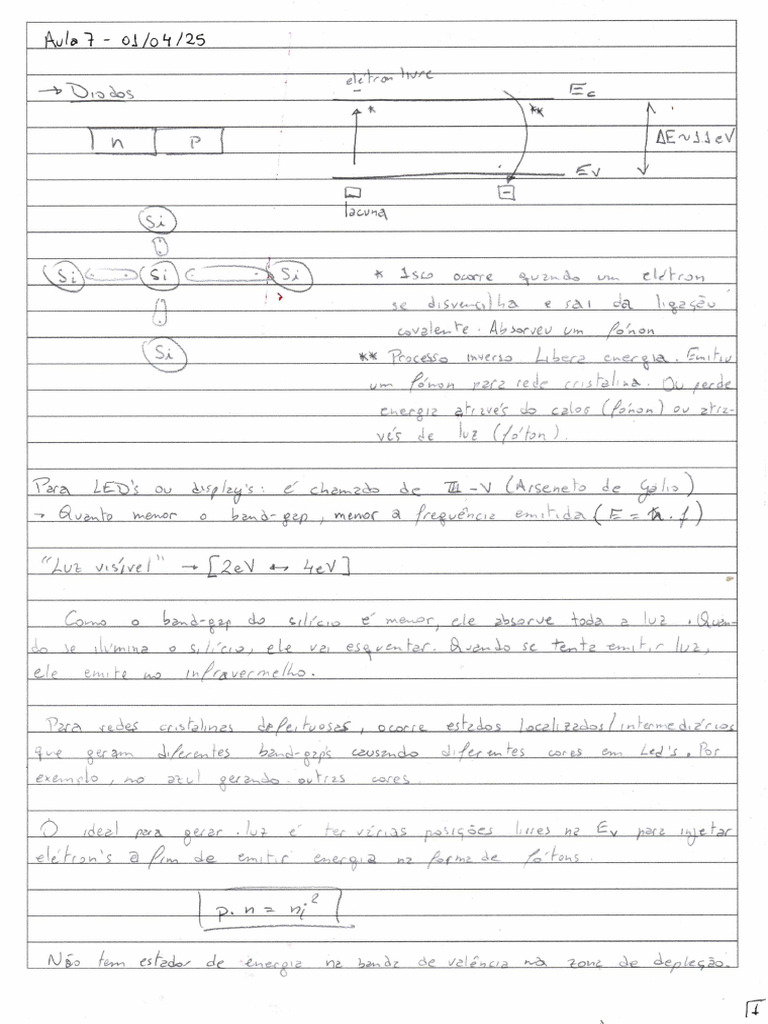 Aula 7 - 01/04/25
→ Diodos
elétron livre
Ec
*
**
n
p
ΔE ~ 1.1eV
Ev
lacuna
Si
Si
Si
Si
Si
* Isso ocorre quando um elétron
se disvencilha e sai da ligação
covalente. Absorveu um fónon
** Processo inverso. Libera energia. Emitiu
um fónon para rede cristalina. Ou perde
energia através do calos (fónon) ou atra-
vés de luz (fóton).
Para LED's ou display's: é chamado de III-V (Arseneto de Gálio)
→ Quanto menor o band-gap, menor a frequência emitida (E = ħ.f)
"Luz visível" → [2eV ↔ 4eV]
Como o band-gap do silício é menor, ele absorve toda a luz. Quan-
do se ilumina o silício, ele vai esquentar. Quando se tenta emitir luz,
ele emite no infravermelho.
Para redes cristalinas defeituosas, ocorre estados localizados/intermediários
que geram diferentes band-gap's causando diferentes cores em Led's. Por
exemplo, no azul gerando outras cores.
O ideal para gerar luz é ter várias posições livres na Ev para injetar
elétron's a fim de emitir energia na forma de fótons.
p.n = ni²
Não tem estador de energia na banda de valência na zona de depleção.
1